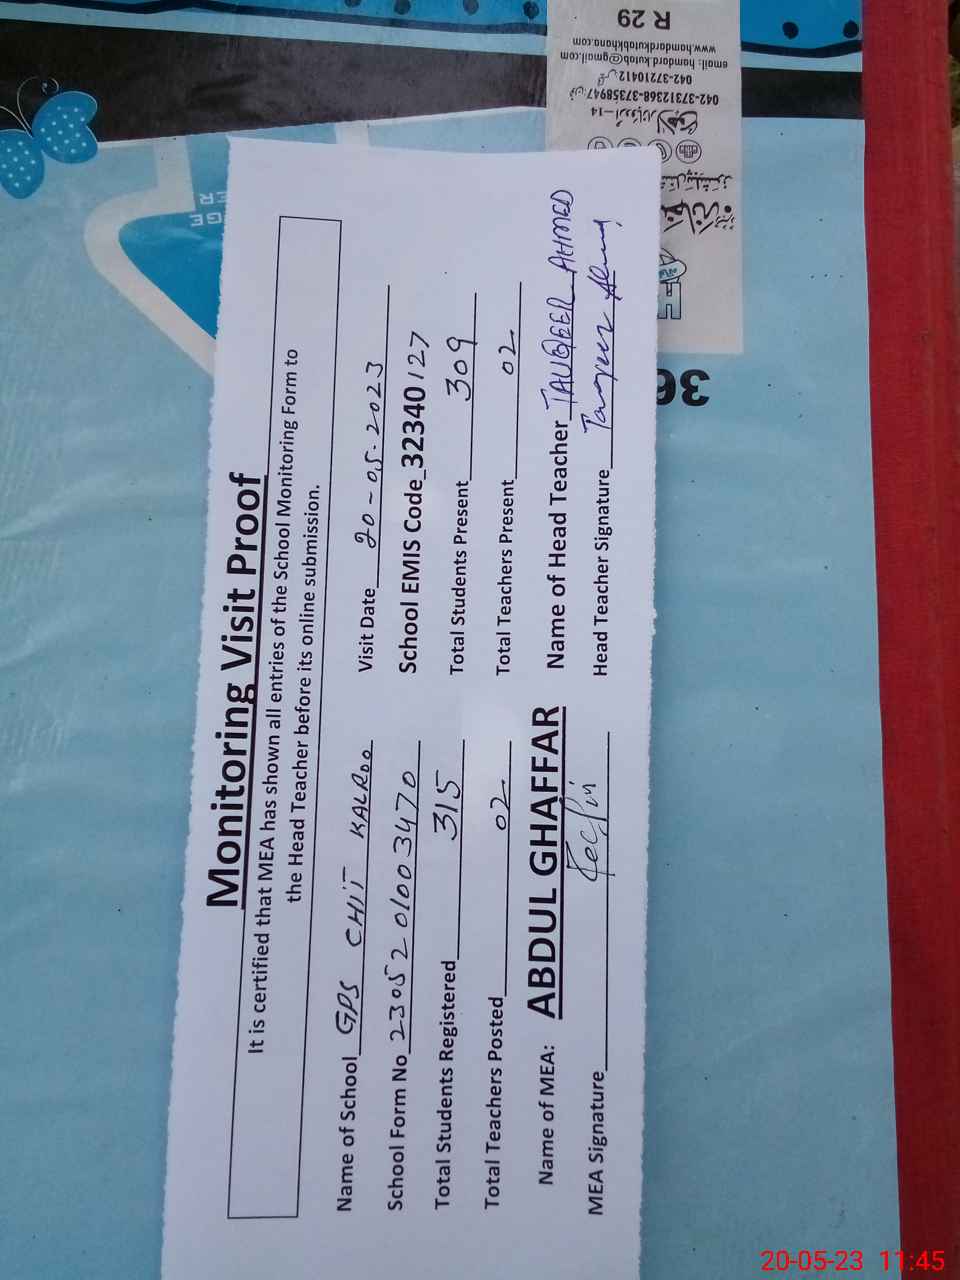 Monitoring Visit Proof
It is certified that MEA has shown all entries of the School Monitoring Form to
the Head Teacher before its online submission.
Name of School GPS CHIT KALROO Visit Date 20-05-2023
School Form No 2305201003470 School EMIS Code_32340127
Total Students Registered 315 Total Students Present 309
Total Teachers Posted 02 Total Teachers Present 02
Name of MEA: ABDUL GHAFFAR Name of Head Teacher TAUQEER AHMED
MEA Signature Head Teacher Signature Tauqeer Ahmed
R 29
www.hamdardkutabkhana.com
email: hamdard.kutab@gmail.com
042-37210412
042-37312368-37358947
36
20-05-23 11:45